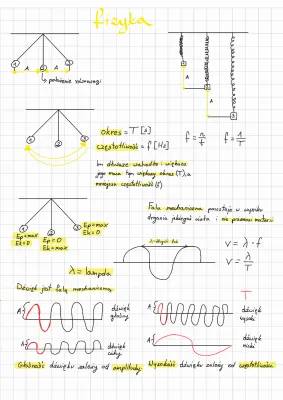 fizyka
A A
1 2 3
położenie równowagi
A
1
A
2
3
okres = T [s]
częstotliwość = f [Hz]
f = n/t f = 1/T
1 2 3
Im dłuższe wahadło i większa
jego masa tym większy okres (T), a
mniejsza częstotliwość (f)
1 2 3
Ep=max Ek=0
Ep=0 Ek=max
Ep=max Ek=0
Fala mechaniczna powstaje w wyniku
drgania jakiegoś ciała i nie przenosi materii
λ = lambda
v = λ · f
v = λ/T
Dźwięk jest falą mechaniczną
A dźwięk głośny
A dźwięk cichy
T
A dźwięk wysoki
A dźwięk niski
Głośność dźwięku zależy od amplitudy
Wysokość dźwięku zależy od częstotliwości